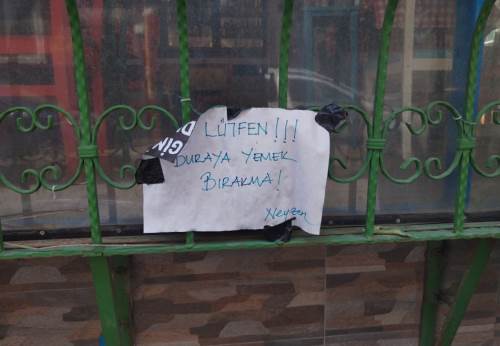 LÜTFEN!!!
DURAYA YEMEK
BIRAKMA!
Neyzen